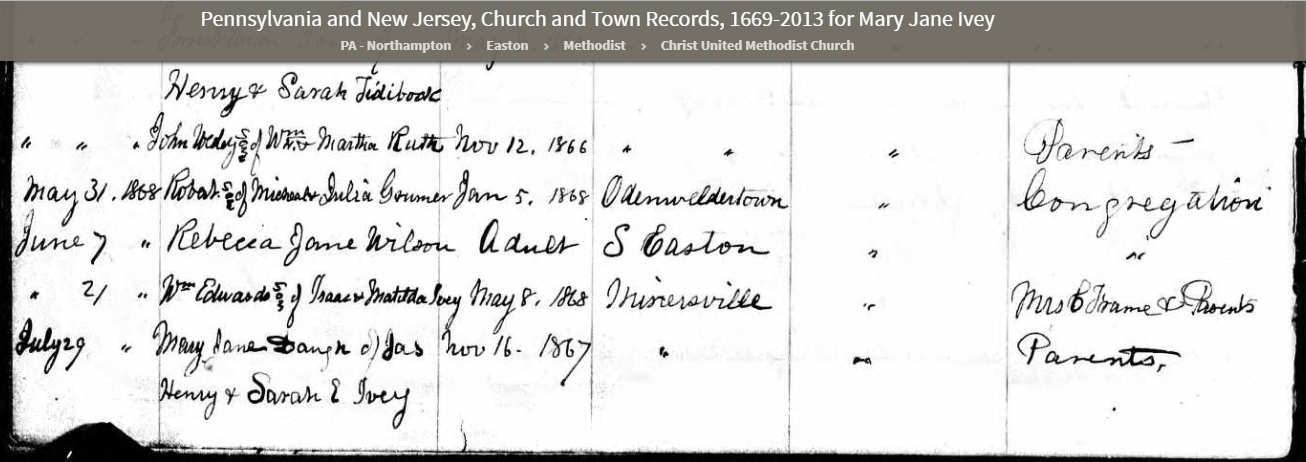 Pennsylvania and New Jersey, Church and Town Records, 1669-2013 for Mary Jane Ivey
PA - Northampton > Easton > Methodist > Christ United Methodist Church
Henry & Sarah Tidiboak
" " " John Wesley son of Wm & Martha Ruth Nov 12. 1866 " " " Parents -
May 31. 1868 Robat. son of & Julia Goumer Jan 5. 1868 Odenweldertown " Congregation
June 7 " Rebecca Jane Wilson Adult S Easton " "
" 21 " Wm Edwards son of Isaac & Matilda Ivey May 8. 1868 Minersville " Mrs C Frame & Parents
July 29 " Mary Jane Daugh of Jas Nov 16. 1867 " " Parents,
Henry & Sarah E Ivey